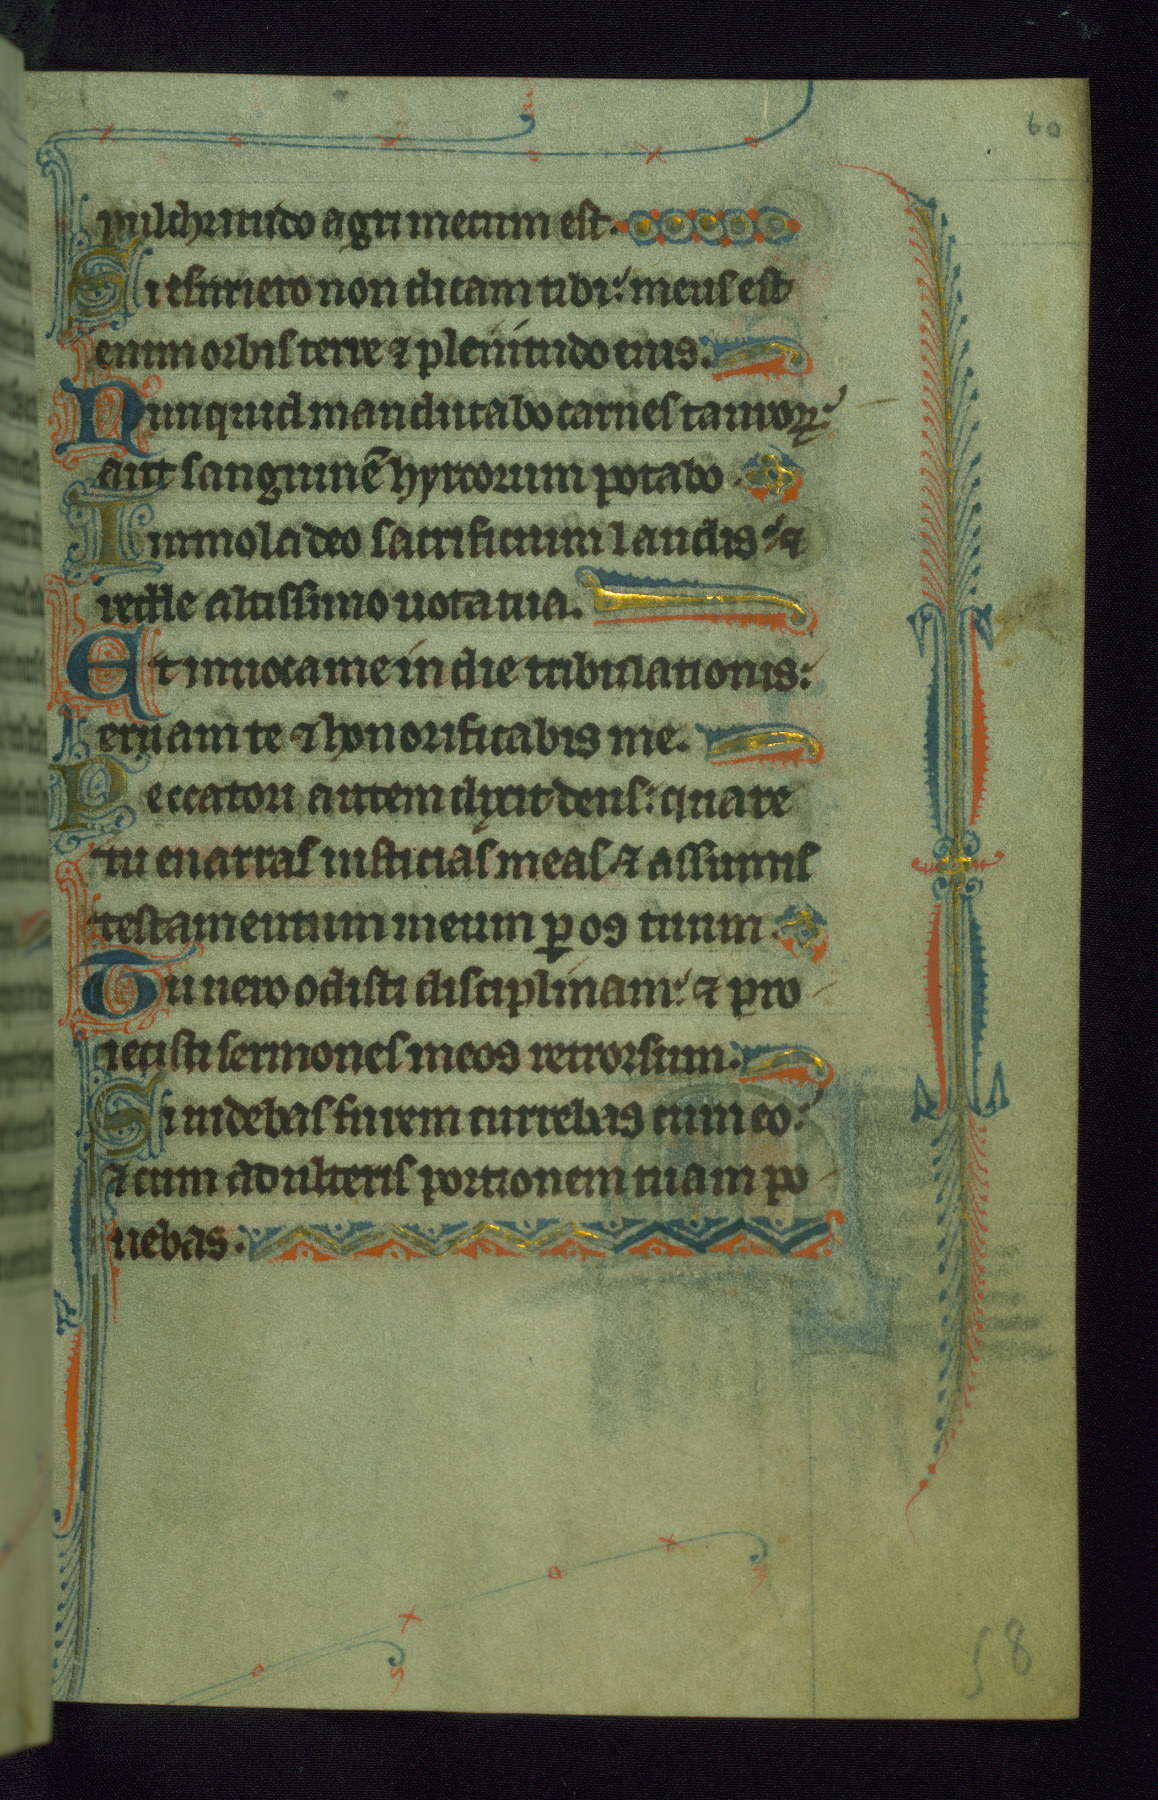 60
pulchritudo agri mecum est.
Si esuriero non dicam tibi: meus est
enim orbis terre ⁊ plenitudo eius.
Nunquid manducabo carnes tauroꝝ:
aut sanguinē hyrcorum potabo.
Immola deo sacrificium laudis: ⁊
redde altissimo uota tua.
Et inuoca me in die tribulationis:
eruam te ⁊ honorificabis me.
Peccatori autem dixit deus: quare
tu enarras iusticias meas ⁊ assumis
testamentum meum ꝑ os tuum.
Tu uero odisti disciplinam: ⁊ pro
iecisti sermones meos retrorsum.
Si uidebas furem currebas cum eo:
⁊ cum adulteris portionem tuam po
nebas.
58